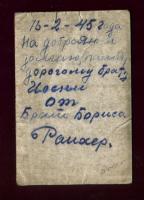 16-2-45 года
На добрую и
долгую память
дорогому брату
Иосifу
От
Брата Бориса
Рапхер.